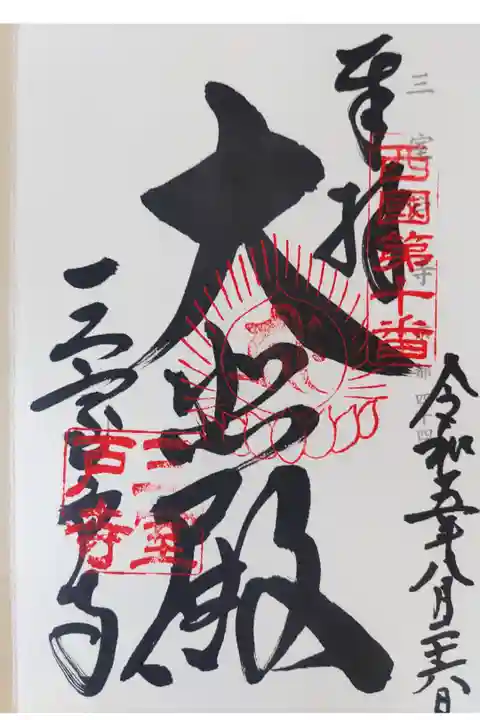 奉拝
西國第十番
令和五年八月二十六日
大悲殿
三室戸寺
三室戸寺